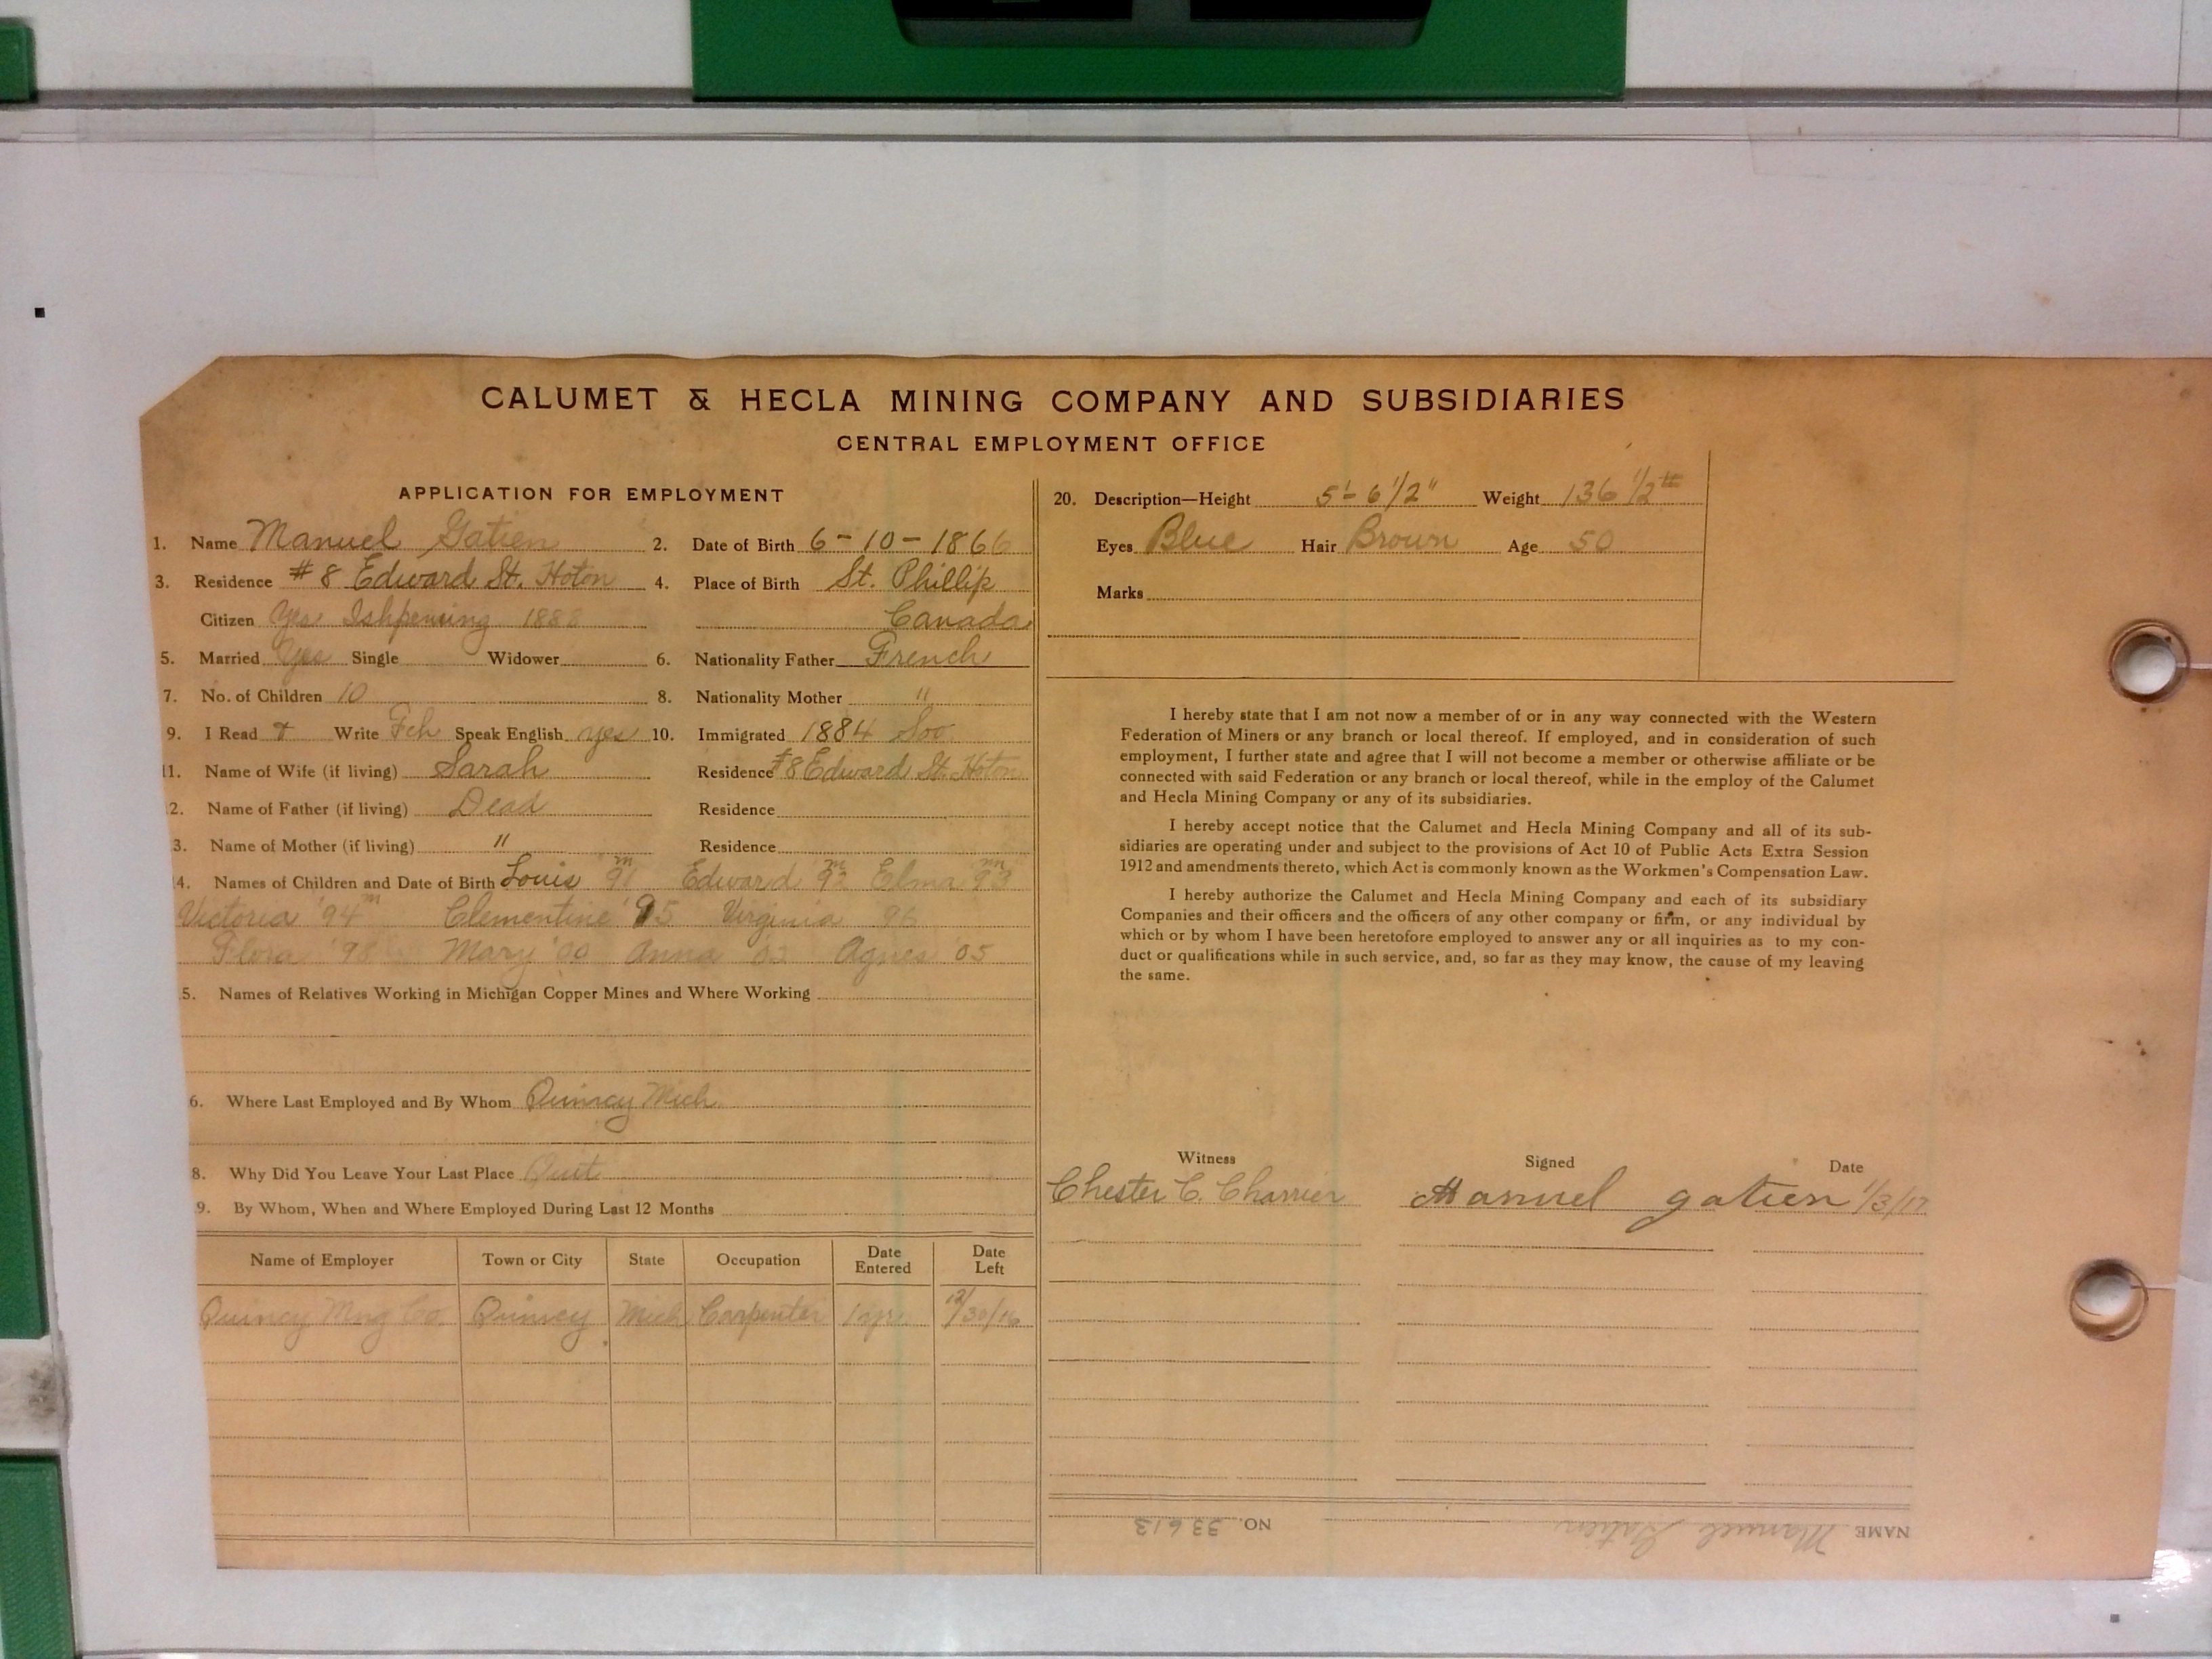 CALUMET & HECLA MINING COMPANY AND SUBSIDIARIES
CENTRAL EMPLOYMENT OFFICE
APPLICATION FOR EMPLOYMENT
1. Name Manuel Gatien
2. Date of Birth 6-10-1866
3. Residence #8 Edward St. Hoton
4. Place of Birth St. Phillip
Citizen Yes Ishpeming 1888
Canada
5. Married Yes Single Widower
6. Nationality Father French
7. No. of Children 10
8. Nationality Mother "
9. I Read & Write Fch Speak English yes
10. Immigrated 1884 Soo
11. Name of Wife (if living) Sarah
Residence #8 Edward St. Hoton
2. Name of Father (if living) Dead
Residence
3. Name of Mother (if living) "
Residence
4. Names of Children and Date of Birth Louis m 91 Edward m 92 Elma m 93
Victoria '94 m Clementine '95 Virginia 96
Flora '98 Mary '00 Anna '02 Agnes '05
5. Names of Relatives Working in Michigan Copper Mines and Where Working
6. Where Last Employed and By Whom Quincy Mich.
8. Why Did You Leave Your Last Place Quit
9. By Whom, When and Where Employed During Last 12 Months
Name of Employer Town or City State Occupation Date Entered Date Left
Quincy Mng Co. Quincy Mich Carpenter 1 yr. 12/30/16
20. Description—Height 5'-6 1/2" Weight 136 1/2
Eyes Blue Hair Brown Age 50
Marks
I hereby state that I am not now a member of or in any way connected with the Western
Federation of Miners or any branch or local thereof. If employed, and in consideration of such
employment, I further state and agree that I will not become a member or otherwise affiliate or be
connected with said Federation or any branch or local thereof, while in the employ of the Calumet
and Hecla Mining Company or any of its subsidiaries.
I hereby accept notice that the Calumet and Hecla Mining Company and all of its sub-
sidiaries are operating under and subject to the provisions of Act 10 of Public Acts Extra Session
1912 and amendments thereto, which Act is commonly known as the Workmen's Compensation Law.
I hereby authorize the Calumet and Hecla Mining Company and each of its subsidiary
Companies and their officers and the officers of any other company or firm, or any individual by
which or by whom I have been heretofore employed to answer any or all inquiries as to my con-
duct or qualifications while in such service, and, so far as they may know, the cause of my leaving
the same.
Witness Signed Date
Chester C. Charrier Manuel gatien 1/3/17
NAME Manuel Gatien NO. 33613